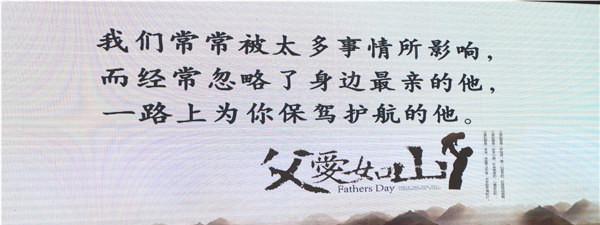 我们常常被太多事情所影响，
而经常忽略了身边最亲的他，
一路上为你保驾护航的他。
父愛如山
Fathers Day